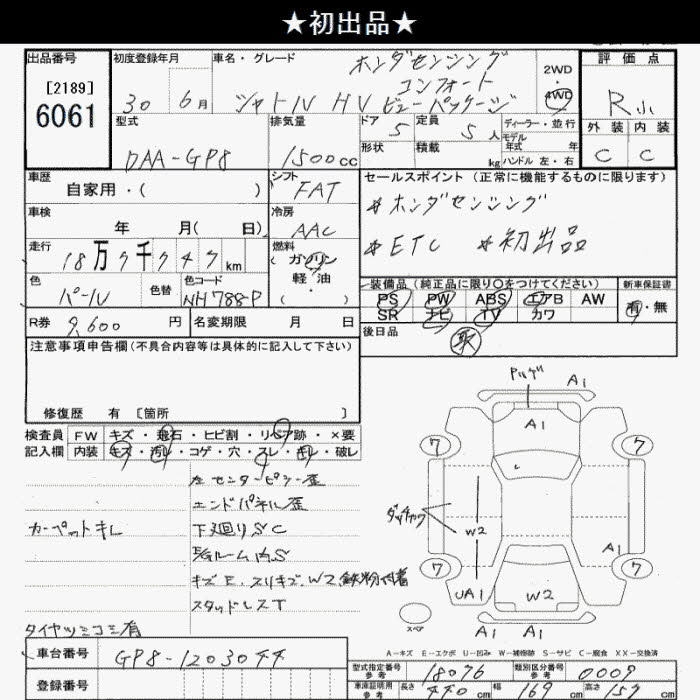 ★初出品★
出品番号
[2189]
6061
初度登録年月
30 6月
車名・グレード
ホンダセンシング
コンフォート
シャトル HV ビューパッケージ
2WD
・
4WD
評価点
R小
外装 内装
C C
型式
DAA-GP8
排気量
1500cc
ドア 5
定員 5人
形状
積載 kg
ディーラー・並行
モデル
年式 年
ハンドル 左・右
車歴
自家用・( )
シフト
FAT
セールスポイント(正常に機能するものに限ります)
*ホンダセンシング
*ETC *初出品
車検
年 月( 日)
冷房
AAC
走行
18万7千747km
燃料
ガソリン
軽油
・( )
色
パール
色替
色コード
NH788P
装備品(純正品に限り○をつけてください)
PS PW ABS エアB AW
SR ナビ TV カワ
新車保証書
有・無
R券 9,600円
名変期限 月 日
後日品
取
注意事項申告欄(不具合内容等は具体的に記入して下さい)
修復歴 有 [箇所 ]
検査員
記入欄
FW キズ・飛石・ヒビ割・リペア跡・×要
内装 キズ・汚レ・コゲ・穴・スレ・キレ・破レ
左センターピラー歪
エンドパネル歪
カーペットキレ
下廻りSC
E/Gルーム内S
キズE.スリキズ.W2鉄粉付着
スタッドレスT
タイヤツミコミ有
A1
A1
7 7
W2
A1
7 7
UA1
W2
スペア
A1 A1
A-キズ E-エクボ U-凹み W-補修跡 S-サビ C-腐食 XX-交換済
車台番号
GP8-1203044
登録番号
型式指定番号
参考
18076
類別区分番号
参考
0009
車庫証明用
参考
長さ 440cm
幅 169cm
高さ 157cm